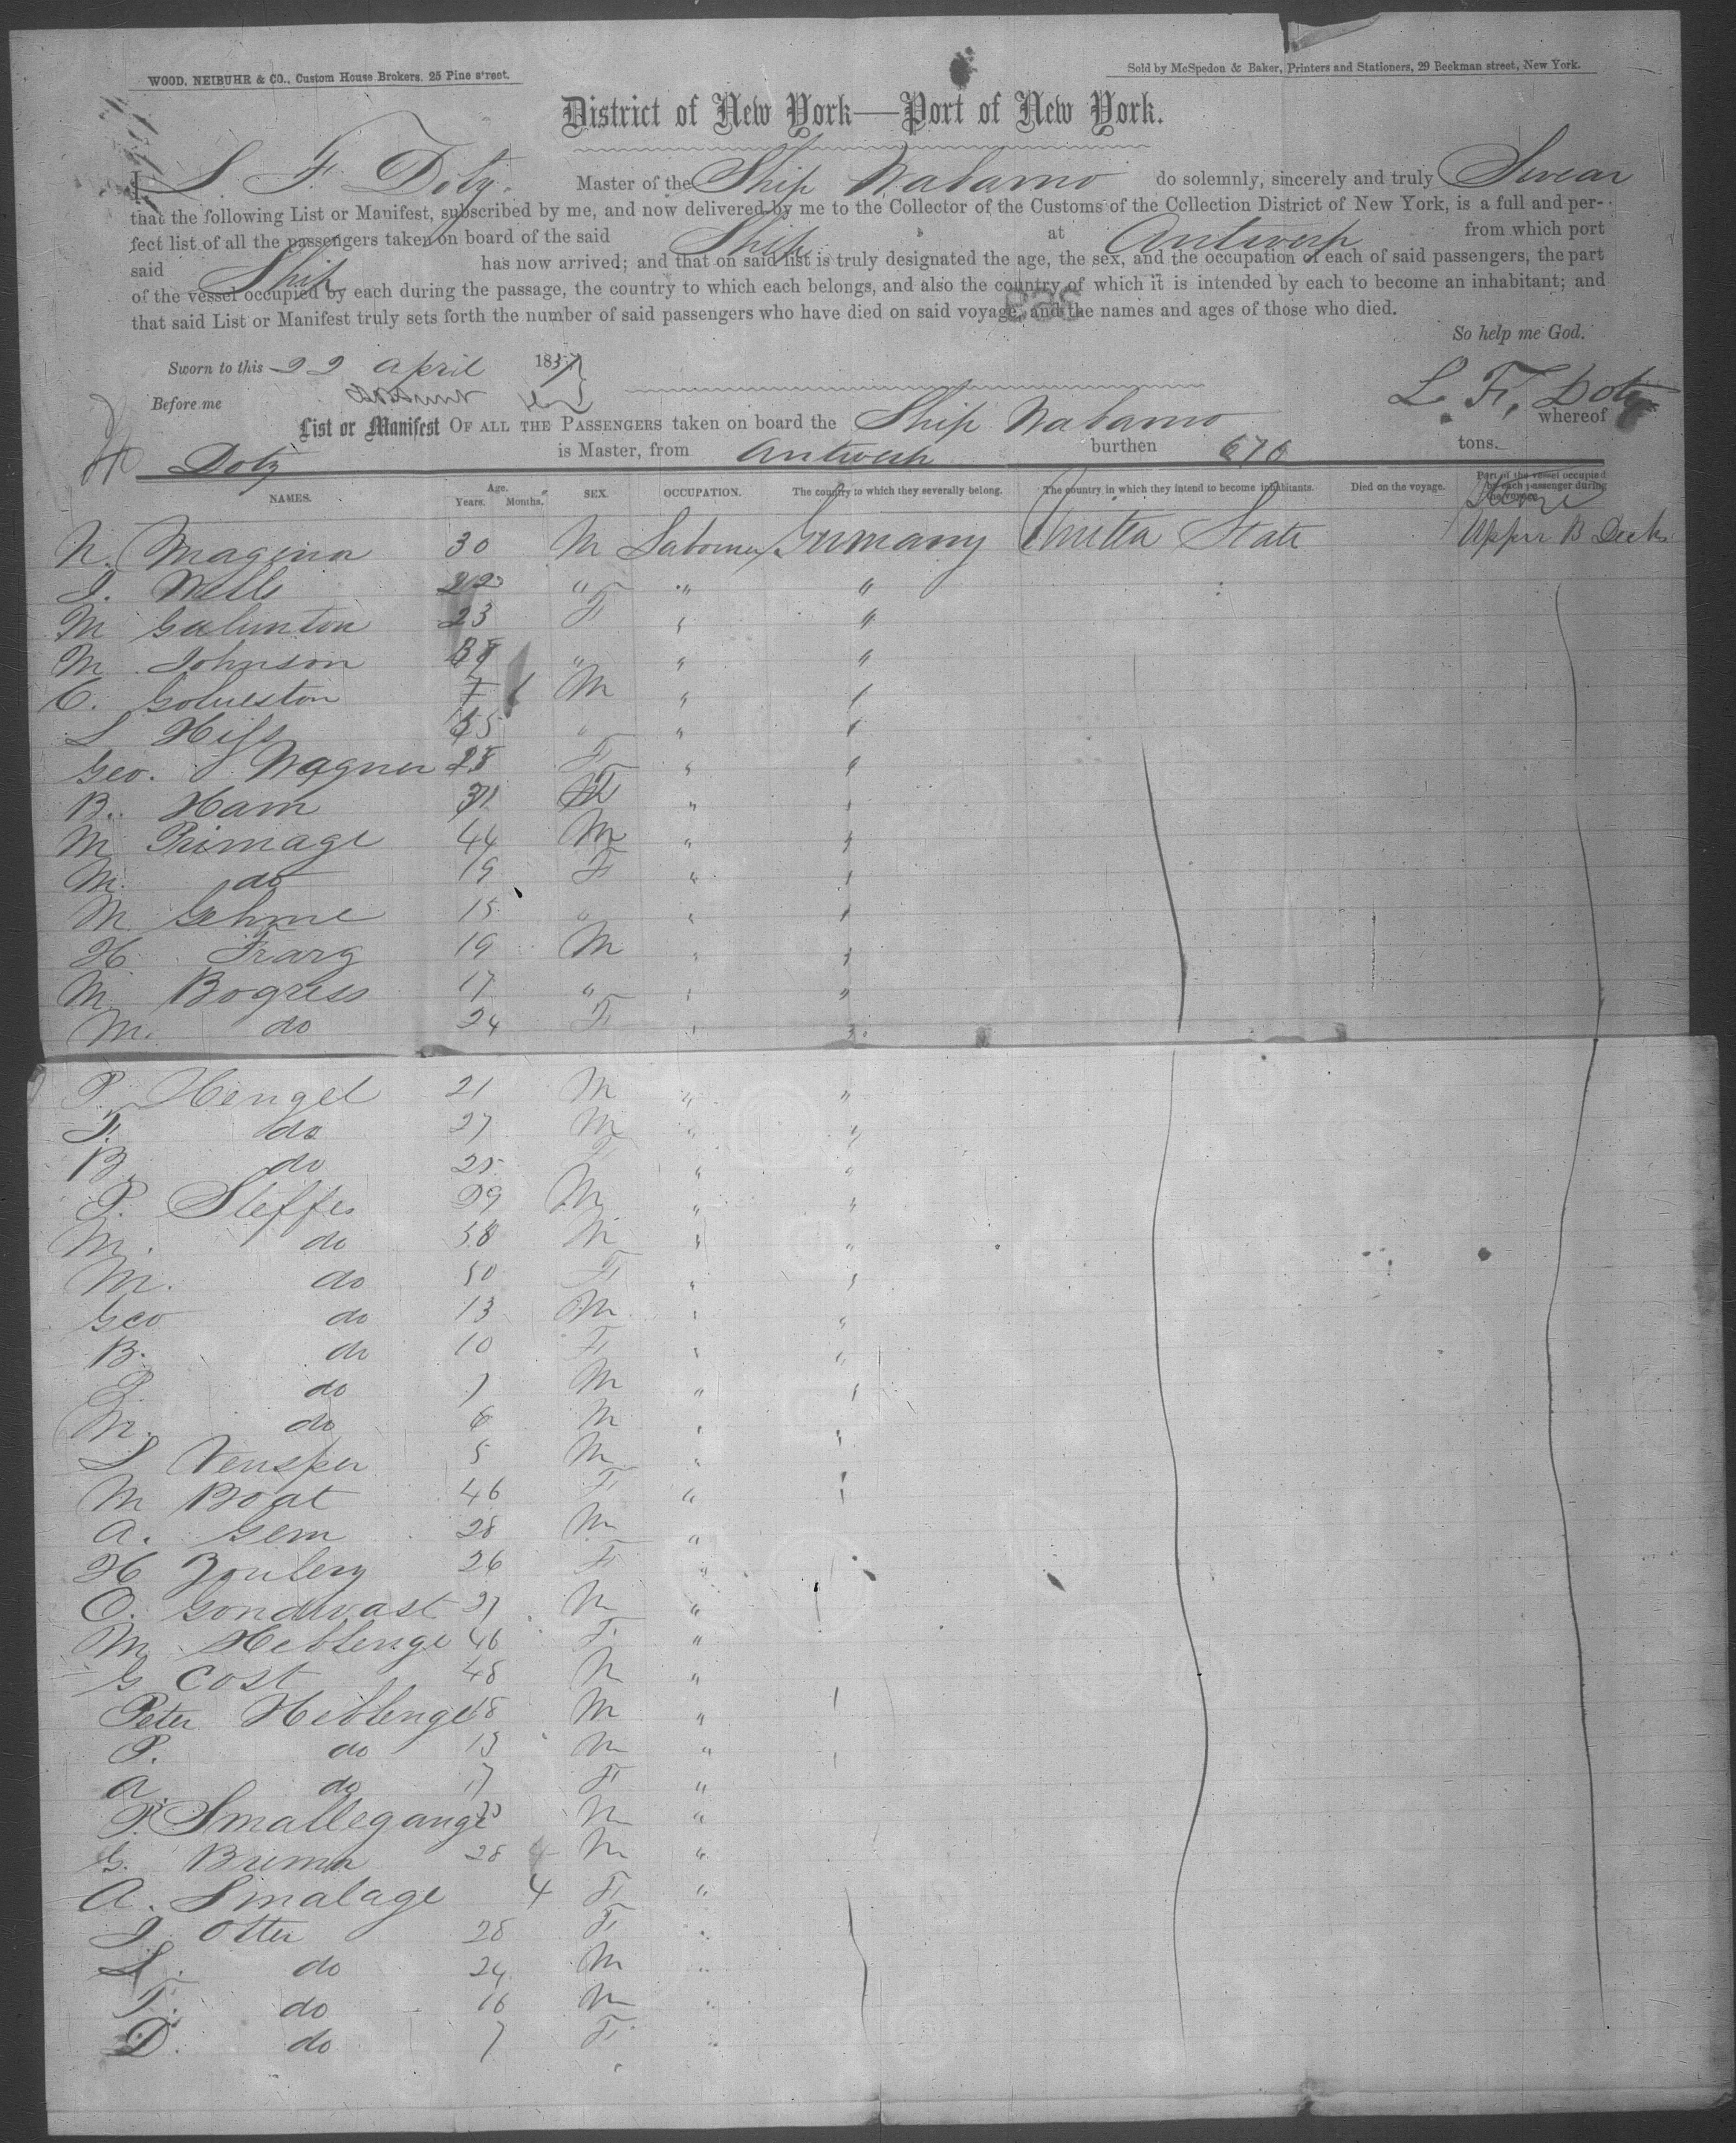 WOOD, NEIBUHR & CO., Custom House Brokers. 25 Pine street.
Sold by McSpedon & Baker, Printers and Stationers, 29 Beekman street, New York.
District of New York—Port of New York.
I, L. F. Doty. Master of the Ship Nabamo do solemnly, sincerely and truly Swear
that the following List or Manifest, subscribed by me, and now delivered by me to the Collector of the Customs of the Collection District of New York, is a full and per-
fect list of all the passengers taken on board of the said Ship at Antwerp from which port
said Ship has now arrived; and that on said list is truly designated the age, the sex, and the occupation of each of said passengers, the part
of the vessel occupied by each during the passage, the country to which each belongs, and also the country of which it is intended by each to become an inhabitant; and
that said List or Manifest truly sets forth the number of said passengers who have died on said voyage, and the names and ages of those who died.
So help me God.
Sworn to this 22 April 1857
Before me
L. F. Doty
List or Manifest OF ALL THE PASSENGERS taken on board the Ship Nabamo whereof
Doty is Master, from Antwerp burthen 676 tons.
NAMES. Age. Years. Months. SEX. OCCUPATION. The country to which they severally belong. The country in which they intend to become inhabitants. Died on the voyage. Part of the vessel occupied by each passenger during the voyage.
N. Magina 30 M Labourer Germany United State Upper B Decks
J. Mells 22 " " "
M 23 F " "
M Johnson " " "
C. M " "
L Hess " " "
Geo. Wagner 28 F " "
B. Ham 31 " "
M Primage 44 M " "
M. do 19 F " "
M Gehme 15 " " "
H Frarg 19 M " "
M Bogress 17 " " "
M. do 24 F " "
P. Hengel 21 M " "
F. do 27 M " "
B. do 25 F " "
P. Steffes 39 M " "
M. do 58 M " "
M. do 50 F " "
Geo do 13 M " "
B. do 10 F " "
P. do 7 M " "
M. do 6 M " "
L Vensper 5 M " "
M Boat 46 F " "
A. Gem 28 M "
H Zoulery 26 F "
O. Gondwast 27 M "
M. Heblenge 46 F "
G Cost 48 M "
Peter Heblenge 18 M "
P. do 13 M "
A. do 17 F "
P. Smallegange M "
G. Brema 28 M "
A. Smalage 4 F "
J. Otter 28 F "
L. do 24 M "
T. do 16 M "
D. do 7 F "